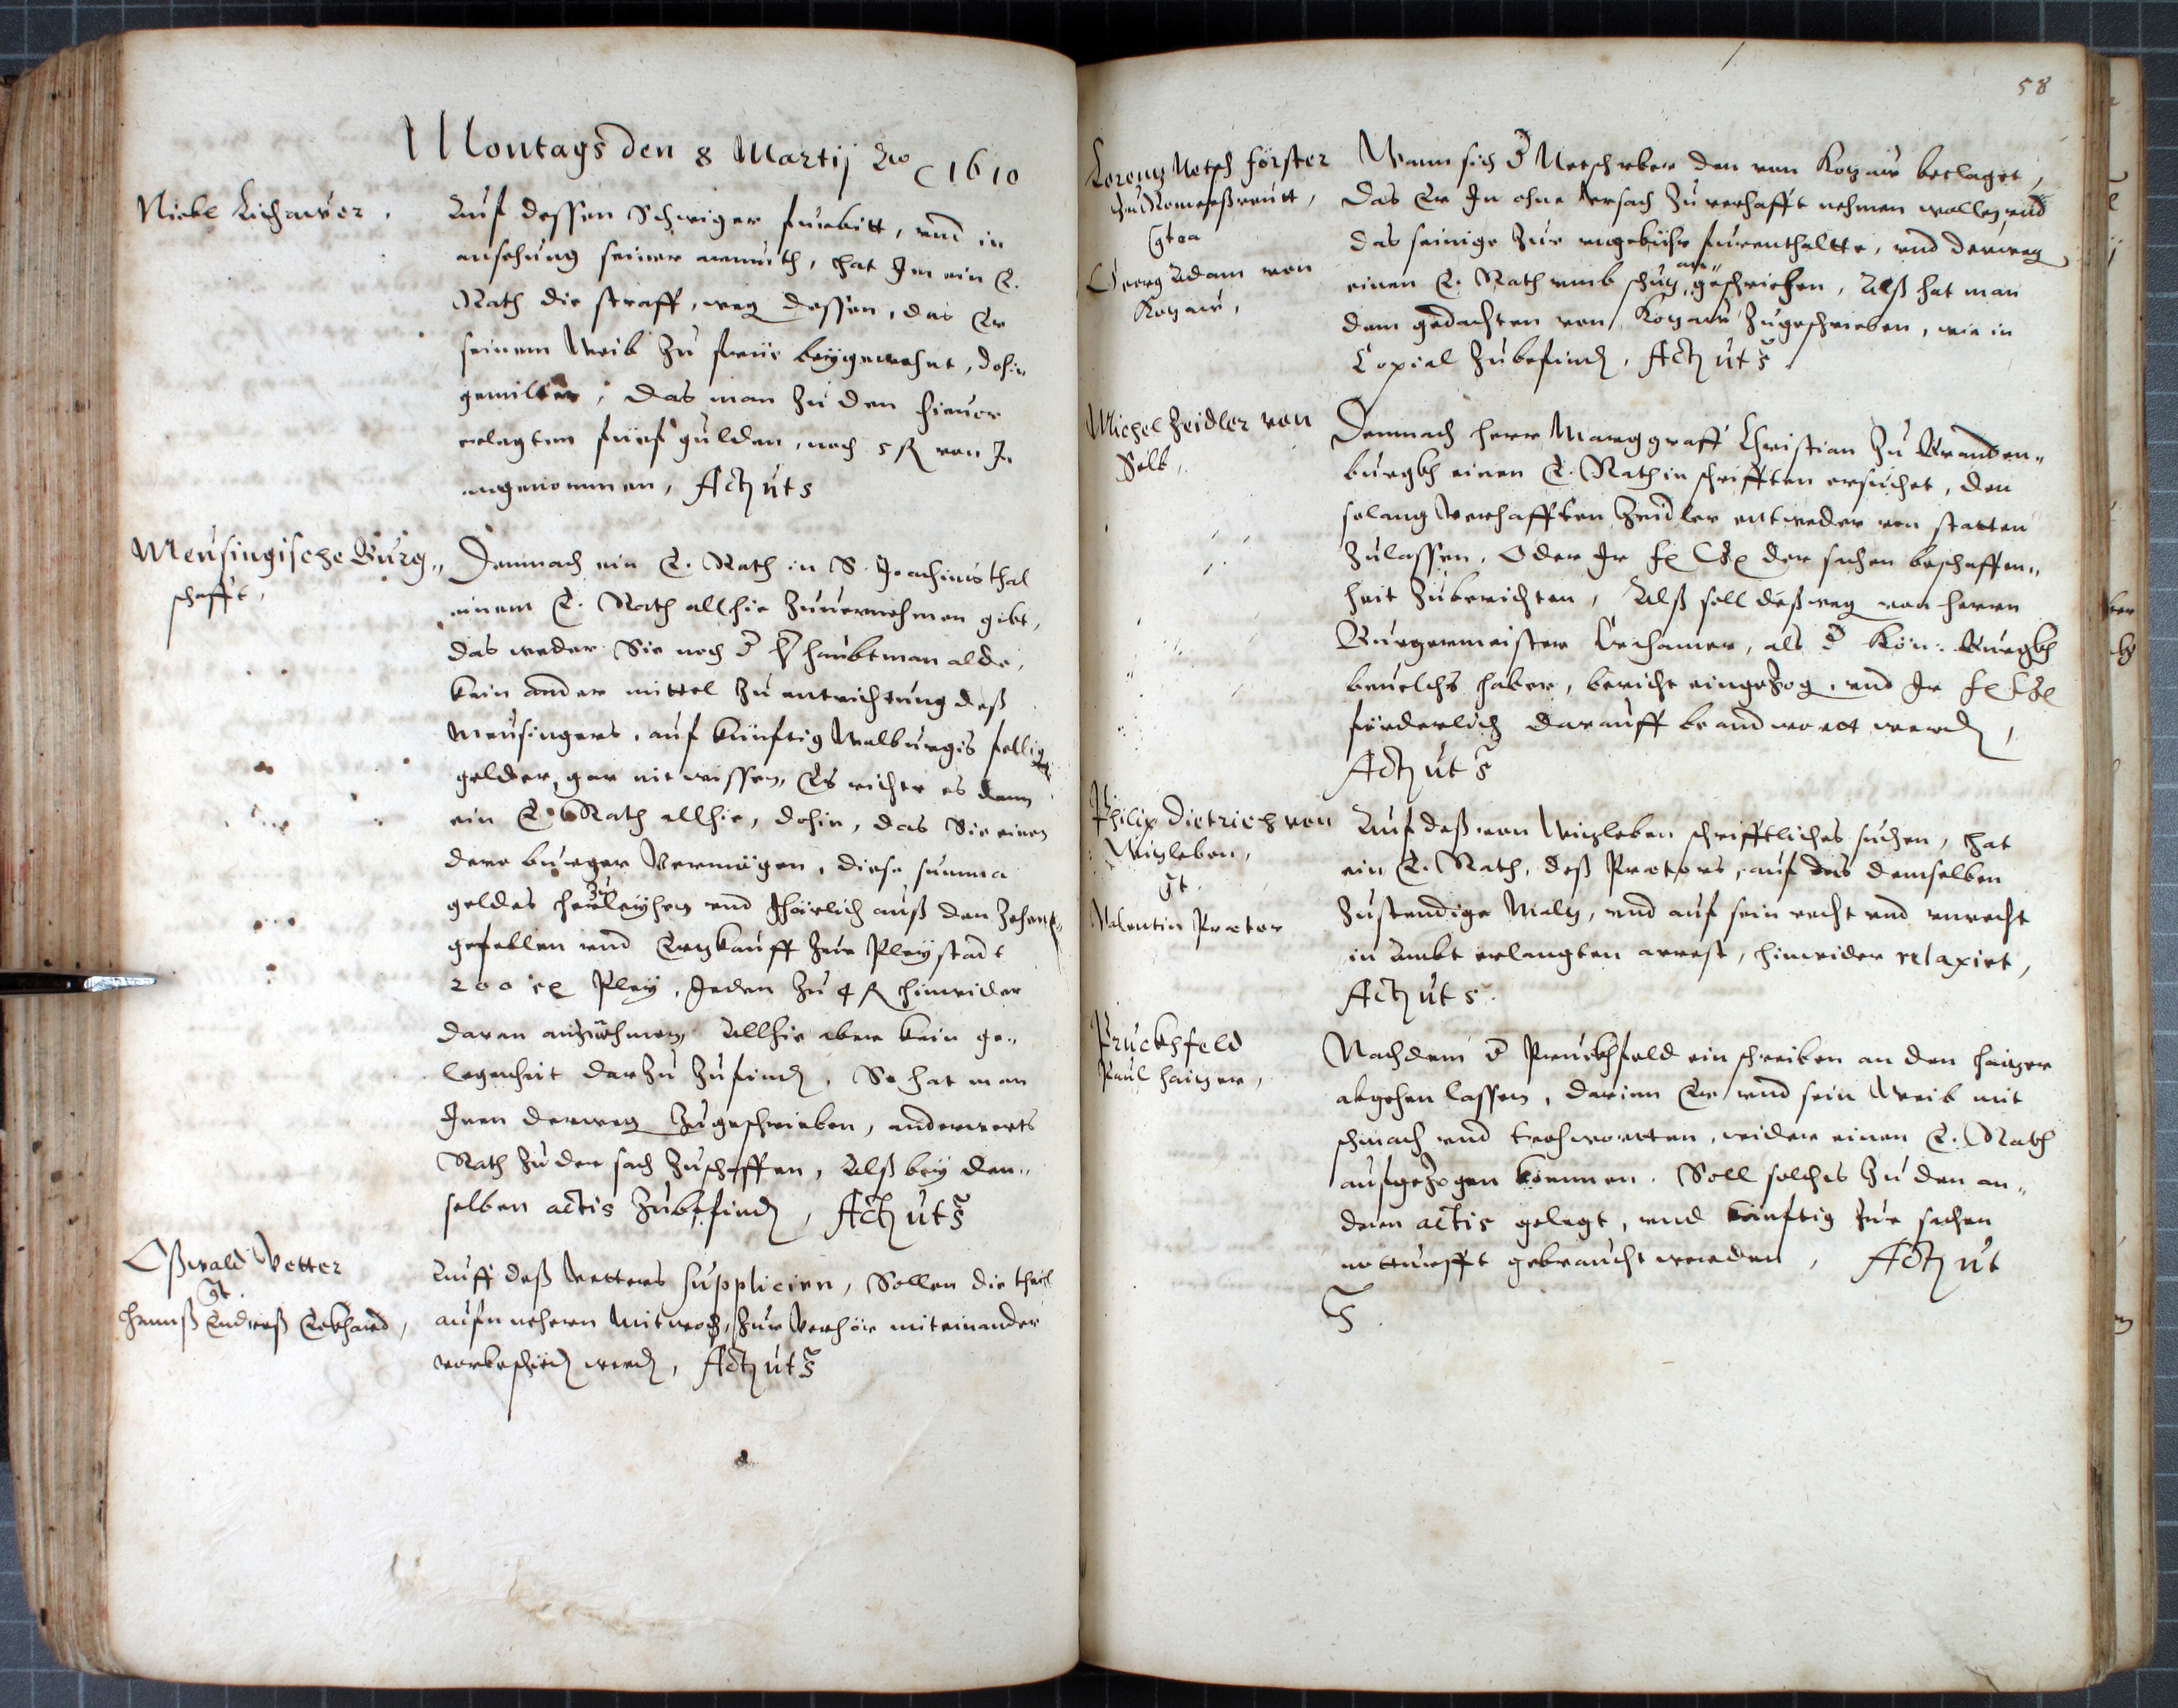 Montags den 8 Martij Ao 1610
Nickl Lichawer.
Auf dessen Schwiger furbitt, und in
ansehung seiner armuth, hat Im ein E.
Rath die straff, weg dessen, das Er
seinem Weib zu frue beygewohnt, dohin
gemiltert, das man zu den hieuor
erlegten funf gulden, noch 5 fl von Im
angenommen, Act ut s
Meusingische Burg„
schafft,
Demnach ein E. Rath in S. Joachimsthal
einem E. Rath allhie zuuernehmen gibt,
das weder Sie noch d haubtman aldo,
kein ander mittel zu entrichtung deß
Meusingers, auf kunftig Walburgis fellig
gelder, gar nit wissen, Es richte es dann
ein E. Rath allhie, dohin, das Sie einen
dero burger Vermögen, diese summa
geldes herzuleyhen und Jhärlich auß den Zehent„
gefellen und Ertzkauff zur Pleystadt
200 Pley, Jeden zu 4 fl hinwider
daran anzunehmen, Allhie aber kein ge„
legenheit darzu zufinden, So hat man
Inen derweg zugeschrieben, anderwerts
Rath zu der sach zuschaffen, Alß bey den„
selben actis zubefinden, Act ut s
Oßwald Vetter
Gt.
Hannß Endreß Eckhard,
Auff deß Vetters suppliciren, Sollen die theil
aufn nehern Mitwoch, zur Verhör miteinander
vorbeschied werd, Act ut s
58
Lorenz Netsch Förster
zu Romeßreutt,
Gtra
Georg Adam von
Kotzau,
Wann sich d Netsch uber den von Kotzau beclaget,
das Er In ohne Vrsach zu verhafft nehmen wollen, und
das seinige zur ungebühr furenthalte, und derweg
einen E. Rath umb schutz an„geschrieben, Alß hat man
dem gedachten von Kotzau zugeschrieben, wie in
Copial zubefind, Act ut s
Michel Zeidler von
Selb,
Demnach herr Marggraff Christian zu Branden„
burgkh einen E. Rath in schrifften ersuchet, den
solang Verhafften Zeidler entweder von statten
zulassen, Oder Ir der sachen beschaffen„
heit zuberichten, Alß soll deßweg von herrn
Burgermeister als d Kön: Burgkh
beuelchs haber, bericht eingezog, und Ir
förderlich darauff beandwortt werd,
Act ut s
Philip Dietrich von
Witzleben,
Gt.
Valentin Prætor
Auf deß von Witzleben schrifftliches suchen, hat
ein E. Rath, deß Prætors, auf das demselben
zustendige Maltz, und auf sein recht und unrecht
in Ambt erlangten arrest, hinwider relaxirt,
Act ut s.
Pruckhfeld
Paul Haitzer,
Nachdem d Pruckhfeld ein schreiben an den Haitzer
abgehen lassen, darinn Er und sein Weib mit
schmach und trohworten, wider einen E. Rath
aufgezogen kommen. Soll solches zu den an„
dern actis gelegt, und könftig zur sachen
notturfft gebraucht werden, Act ut
s.